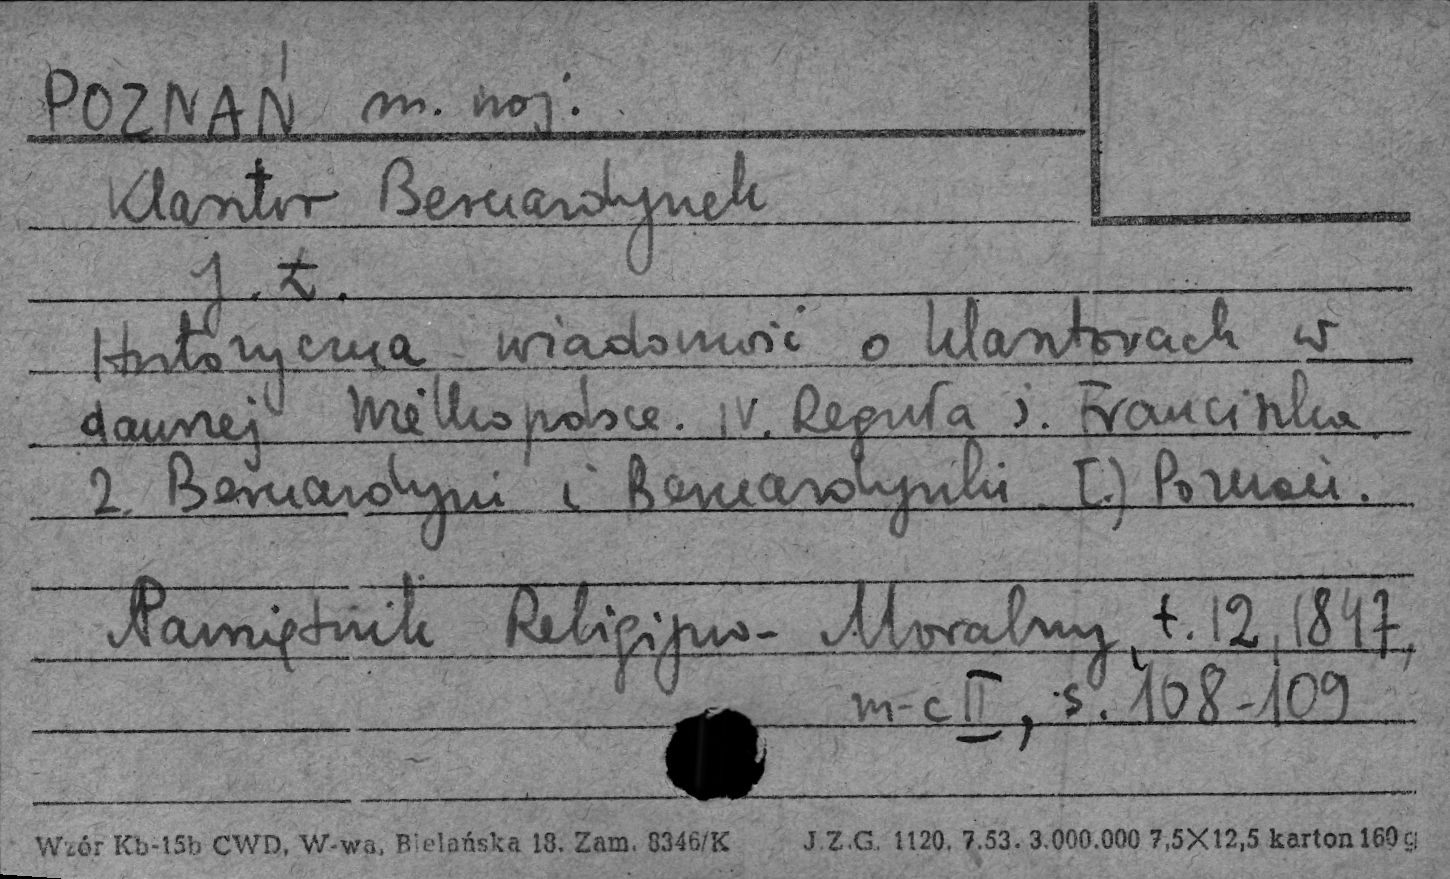 POZNAŃ m. woj.
Klasztor Bernardynek
J. Ł.
Historyczna wiadomość o klasztorach w
dawnej Wielkopolsce. IV. Reguła ś. Franciszka.
2. Bernardyni i Bernardynki [.) Poznań.
Pamiętnik Religijno-Moralny, t. 12, 1847,
m-c II, s. 108-109
Wzór Kb-15b CWD, W-wa, Bielańska 18. Zam. 8346/K J.Z.G. 1120. 7.53. 3.000.000 7,5×12,5 karton 160 g